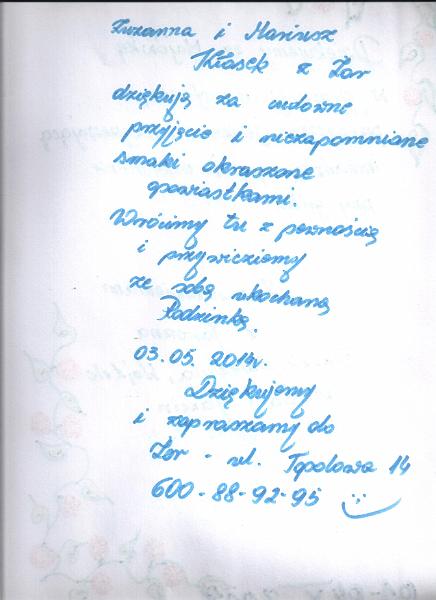 Zuzanna i Mariusz
Kłosek z Żor
dziękują za cudowne
przyjęcie i niezapomniane
smaki okraszone
opowiastkami.
Wrócimy tu z pewnością
i przywieziemy
ze sobą ukochaną
Rodzinkę.
03.05.2014r.
Dziękujemy
i zapraszamy do
Żor - ul. Topolowa 14
600-88-92-95